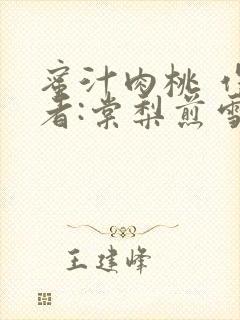 蜜汁肉桃 作
者:棠梨煎雪
王建峰